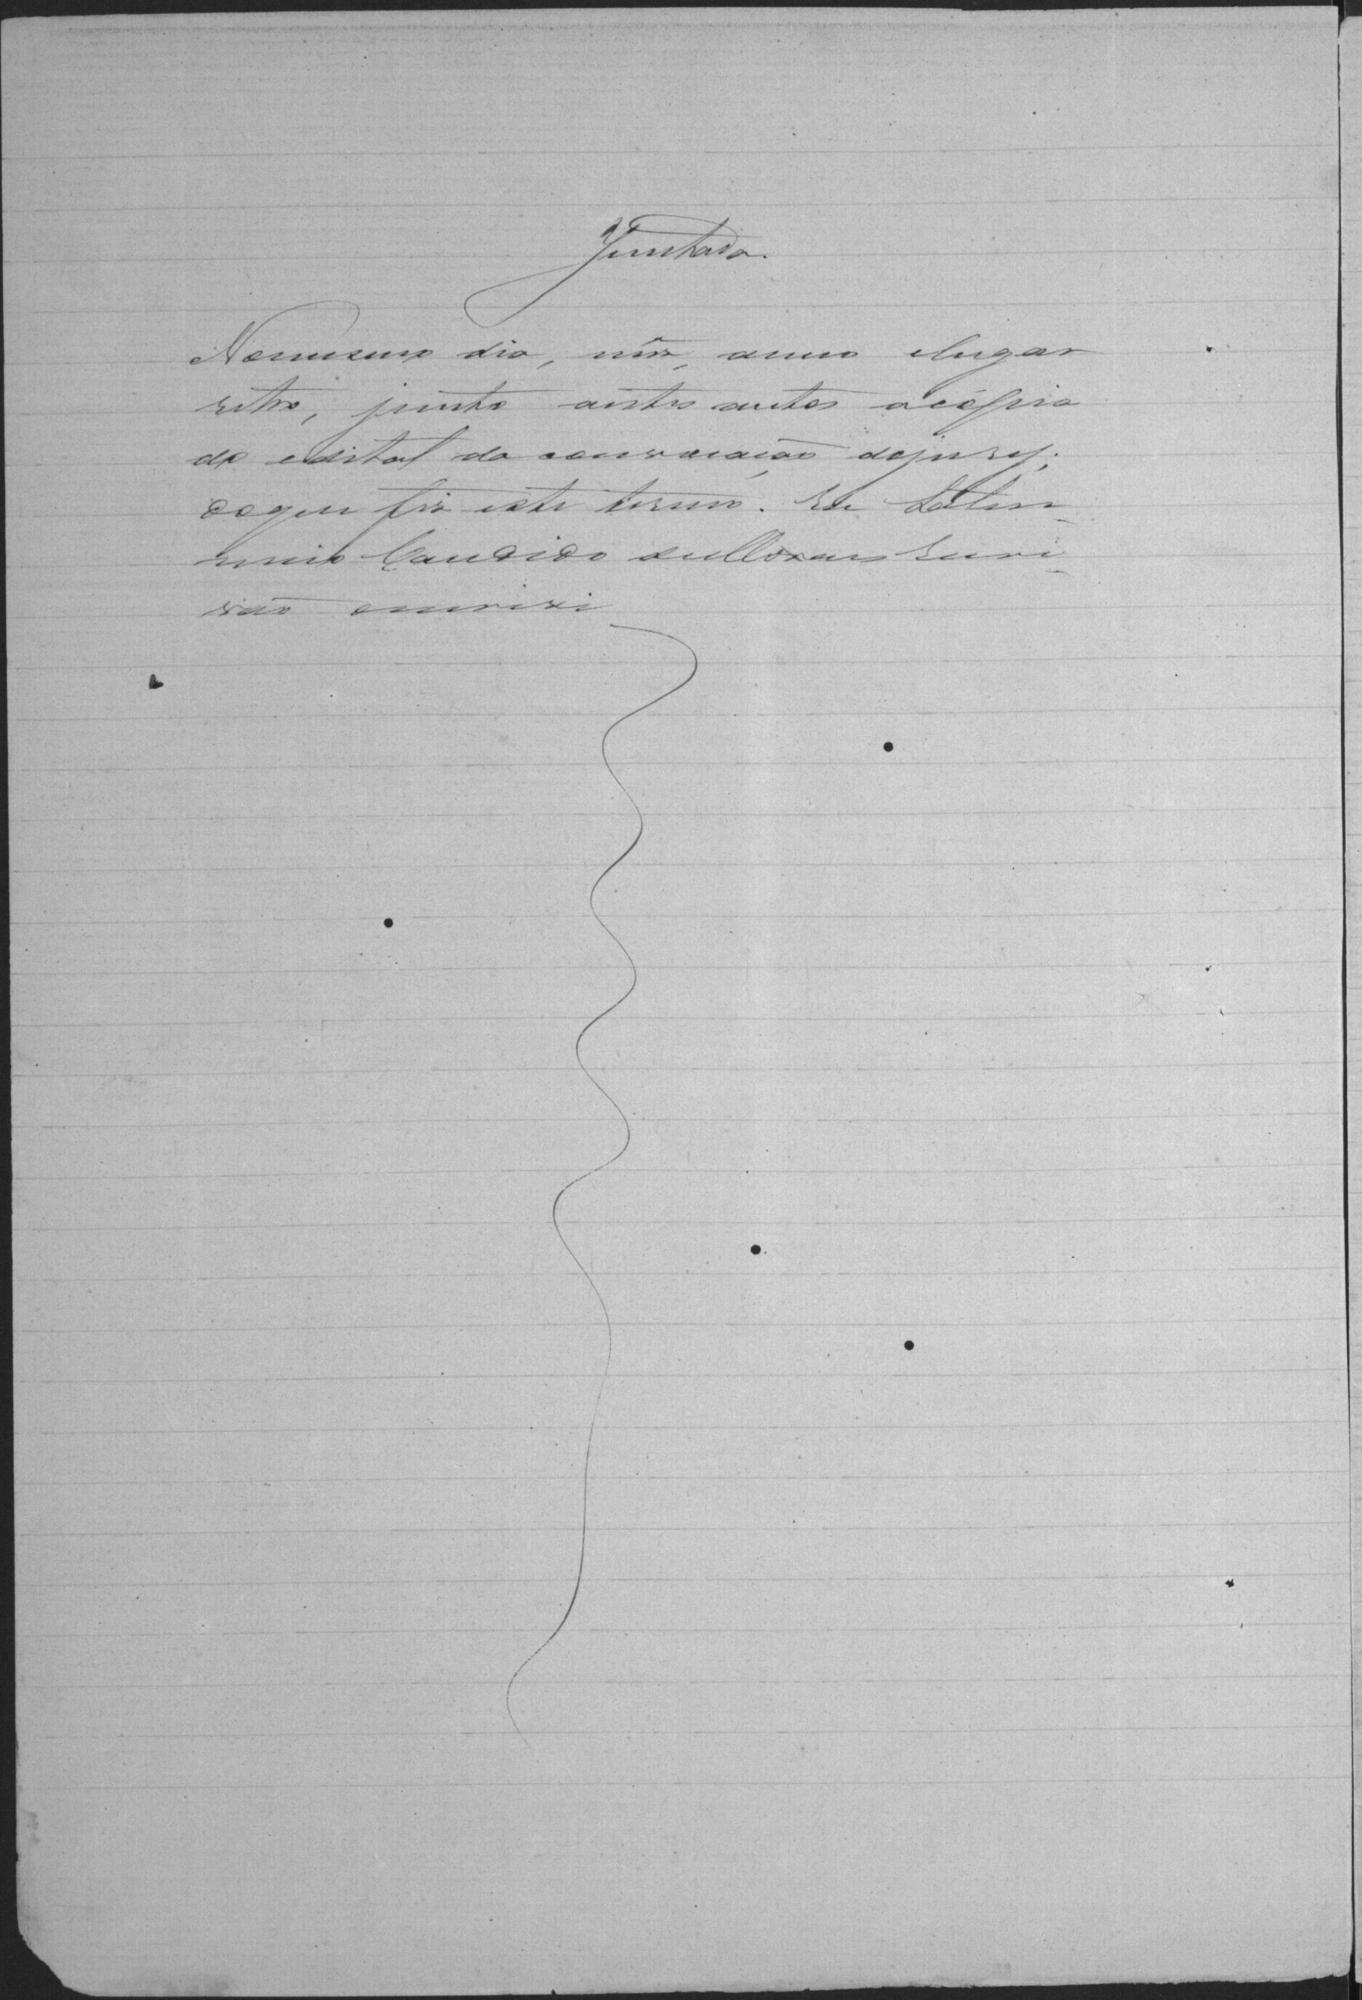 Juntada.
Nomesmo dia, mês, anno elugar
retro, junto aestes autos acópia
do edital da convocação dojury;
doque fiz este termo. Eu
Candido Escri-
vão escrevi